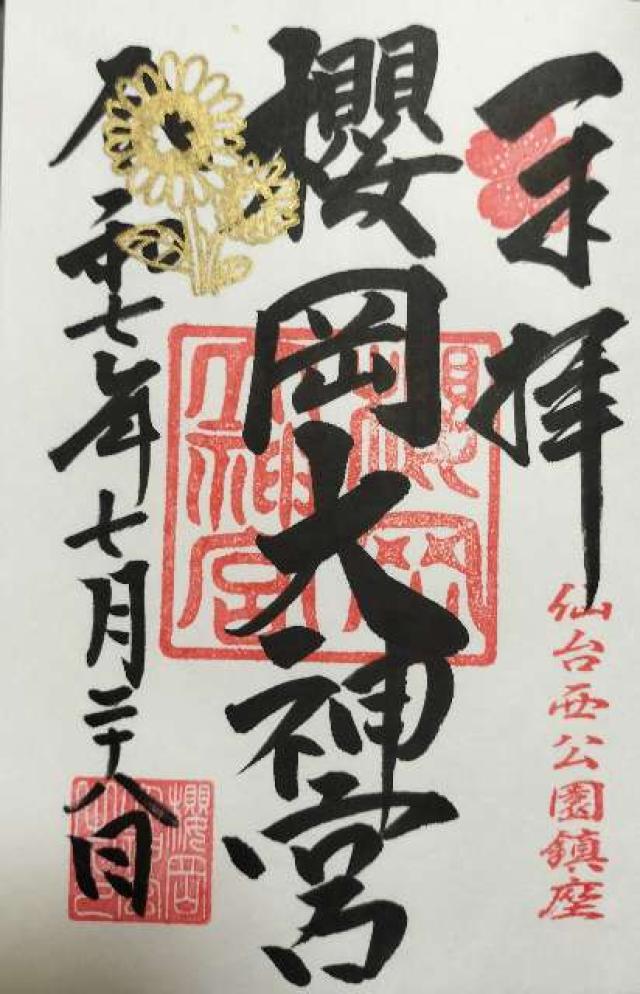 奉拝
仙台西公園鎮座
櫻岡大神宮
櫻岡大神宮
令和七年七月二十八日